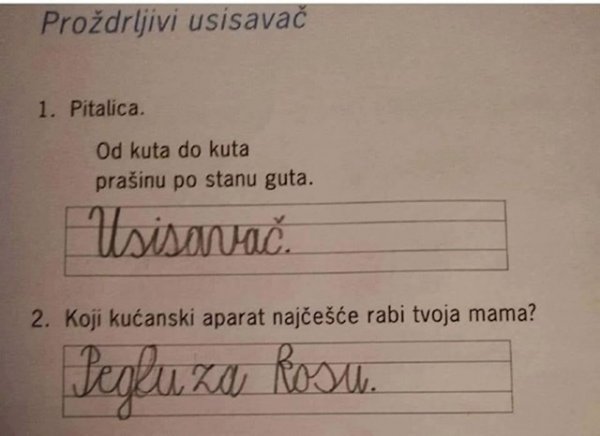 Proždrljivi usisavač
1. Pitalica.
Od kuta do kuta
prašinu po stanu guta.
Usisavač.
2. Koji kućanski aparat najčešće rabi tvoja mama?
Peglu za kosu.